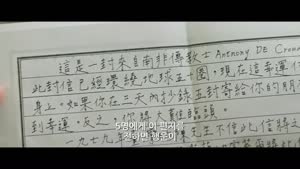 這是一封來自南非傳教士Anthony DE Crou
此封信已經環繞地球五十圈,現在這幸運
身上。如果你在三天內抄錄五封寄給你的朋
到幸運。反之,你將大 臨頭。
一九七九年 先生不信此信將之
5명에게 이 편지를
전하면 행운이